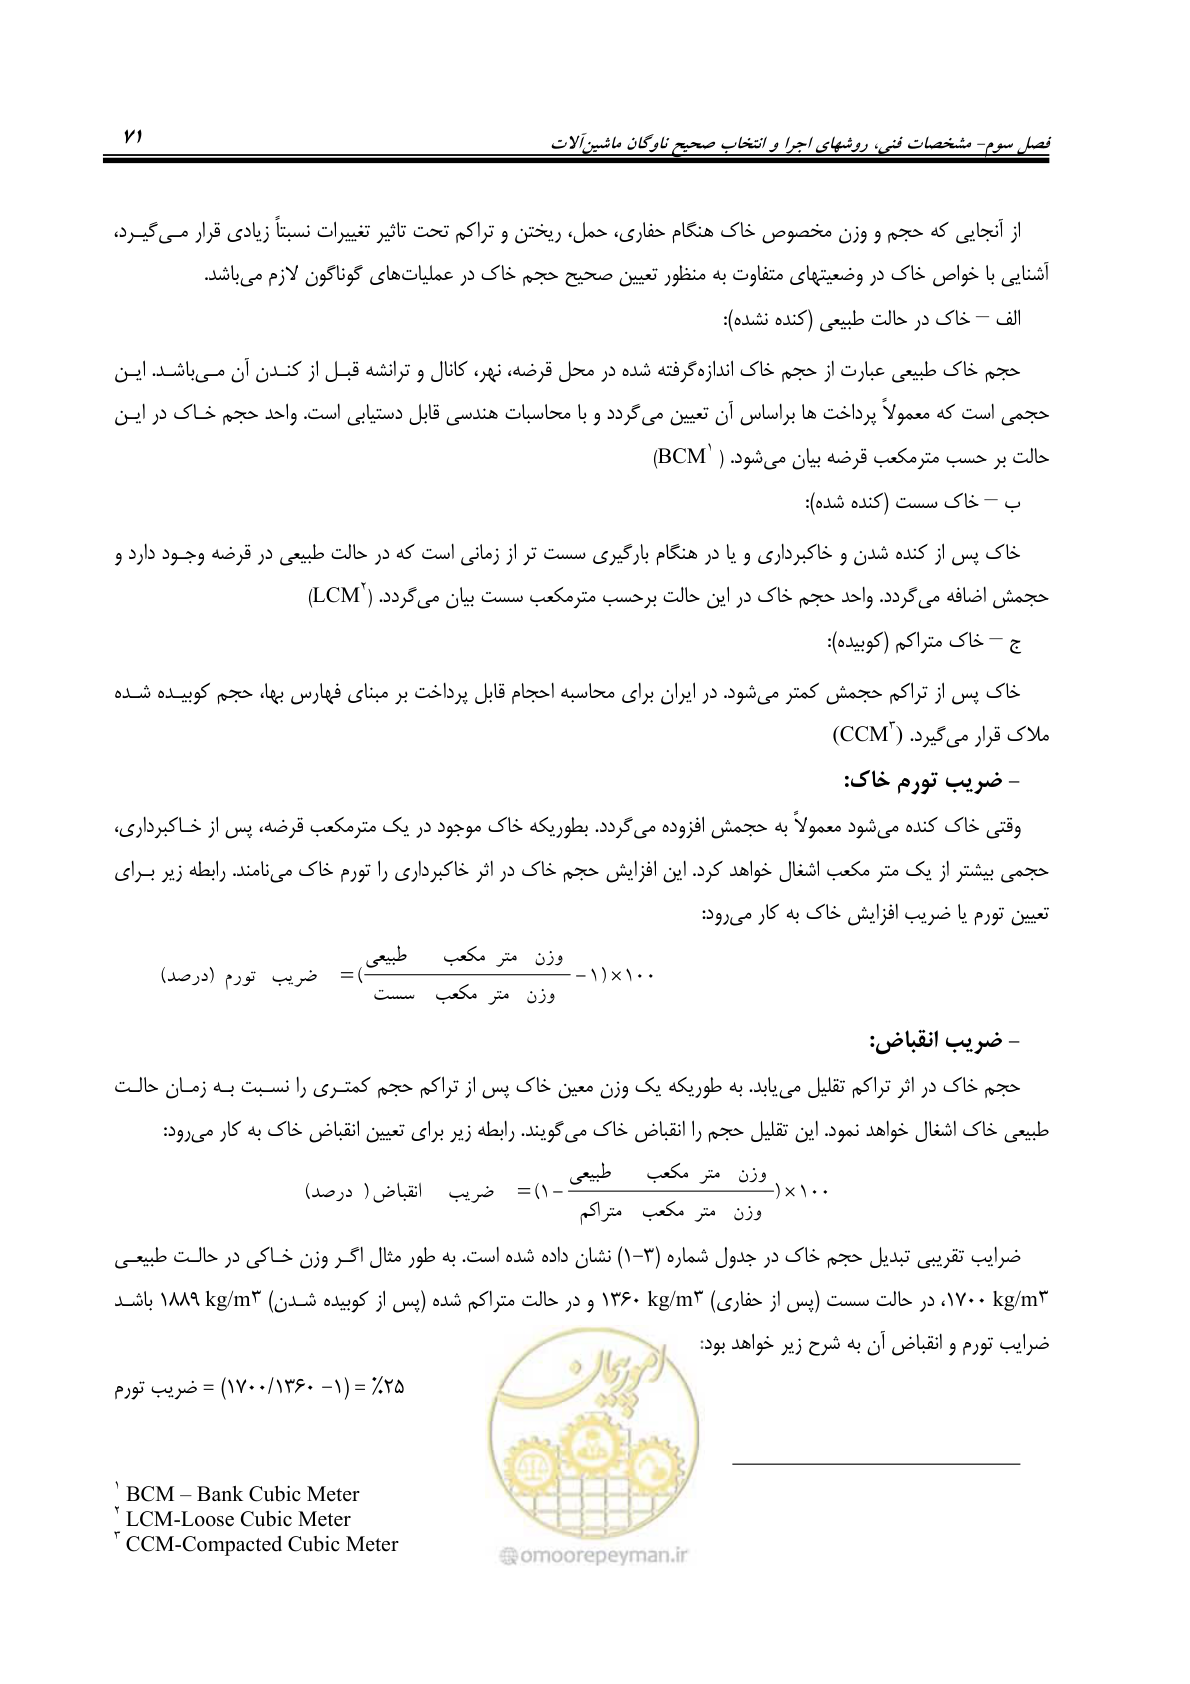 فصل سوم- مشخصات فنی، روشهای اجرا و انتخاب صحیح ناوگان ماشین‌آلات ۷۱
از آنجایی که حجم و وزن مخصوص خاک هنگام حفاری، حمل، ریختن و تراکم تحت تاثیر تغییرات نسبتاً زیادی قرار مـی‌گیـرد،
آشنایی با خواص خاک در وضعیتهای متفاوت به منظور تعیین صحیح حجم خاک در عملیات‌های گوناگون لازم می‌باشد.
الف – خاک در حالت طبیعی (کنده نشده):
حجم خاک طبیعی عبارت از حجم خاک اندازه‌گرفته شده در محل قرضه، نهر، کانال و ترانشه قبـل از کنـدن آن مـی‌باشـد. ایـن
حجمی است که معمولاً پرداخت ها براساس آن تعیین می‌گردد و با محاسبات هندسی قابل دستیابی است. واحد حجم خـاک در ایـن
حالت بر حسب مترمکعب قرضه بیان می‌شود. ( BCM۱)
ب – خاک سست (کنده شده):
خاک پس از کنده شدن و خاکبرداری و یا در هنگام بارگیری سست تر از زمانی است که در حالت طبیعی در قرضه وجـود دارد و
حجمش اضافه می‌گردد. واحد حجم خاک در این حالت برحسب مترمکعب سست بیان می‌گردد. (LCM۲)
ج – خاک متراکم (کوبیده):
خاک پس از تراکم حجمش کمتر می‌شود. در ایران برای محاسبه احجام قابل پرداخت بر مبنای فهارس بها، حجم کوبیـده شـده
ملاک قرار می‌گیرد. (CCM۳)
– ضریب تورم خاک:
وقتی خاک کنده می‌شود معمولاً به حجمش افزوده می‌گردد. بطوریکه خاک موجود در یک مترمکعب قرضه، پس از خـاکبرداری،
حجمی بیشتر از یک متر مکعب اشغال خواهد کرد. این افزایش حجم خاک در اثر خاکبرداری را تورم خاک می‌نامند. رابطه زیر بـرای
تعیین تورم یا ضریب افزایش خاک به کار می‌رود:
وزن متر مکعب طبیعی
ضریب تورم (درصد) =( - ۱)×۱۰۰
وزن متر مکعب سست
– ضریب انقباض:
حجم خاک در اثر تراکم تقلیل می‌یابد. به طوریکه یک وزن معین خاک پس از تراکم حجم کمتـری را نسـبت بـه زمـان حالـت
طبیعی خاک اشغال خواهد نمود. این تقلیل حجم را انقباض خاک می‌گویند. رابطه زیر برای تعیین انقباض خاک به کار می‌رود:
وزن متر مکعب طبیعی
ضریب انقباض( درصد) =(۱- )×۱۰۰
وزن متر مکعب متراکم
ضرایب تقریبی تبدیل حجم خاک در جدول شماره (۳-۱) نشان داده شده است. به طور مثال اگـر وزن خـاکی در حالـت طبیعـی
۱۷۰۰ kg/m۳، در حالت سست (پس از حفاری) ۱۳۶۰ kg/m۳ و در حالت متراکم شده (پس از کوبیده شـدن) ۱۸۸۹ kg/m۳ باشـد
ضرایب تورم و انقباض آن به شرح زیر خواهد بود:
ضریب تورم = (۱۷۰۰/۱۳۶۰ -۱) = ٪۲۵
۱ BCM – Bank Cubic Meter
۲ LCM-Loose Cubic Meter
۳ CCM-Compacted Cubic Meter
امور پیمان
@omoorepeyman.ir